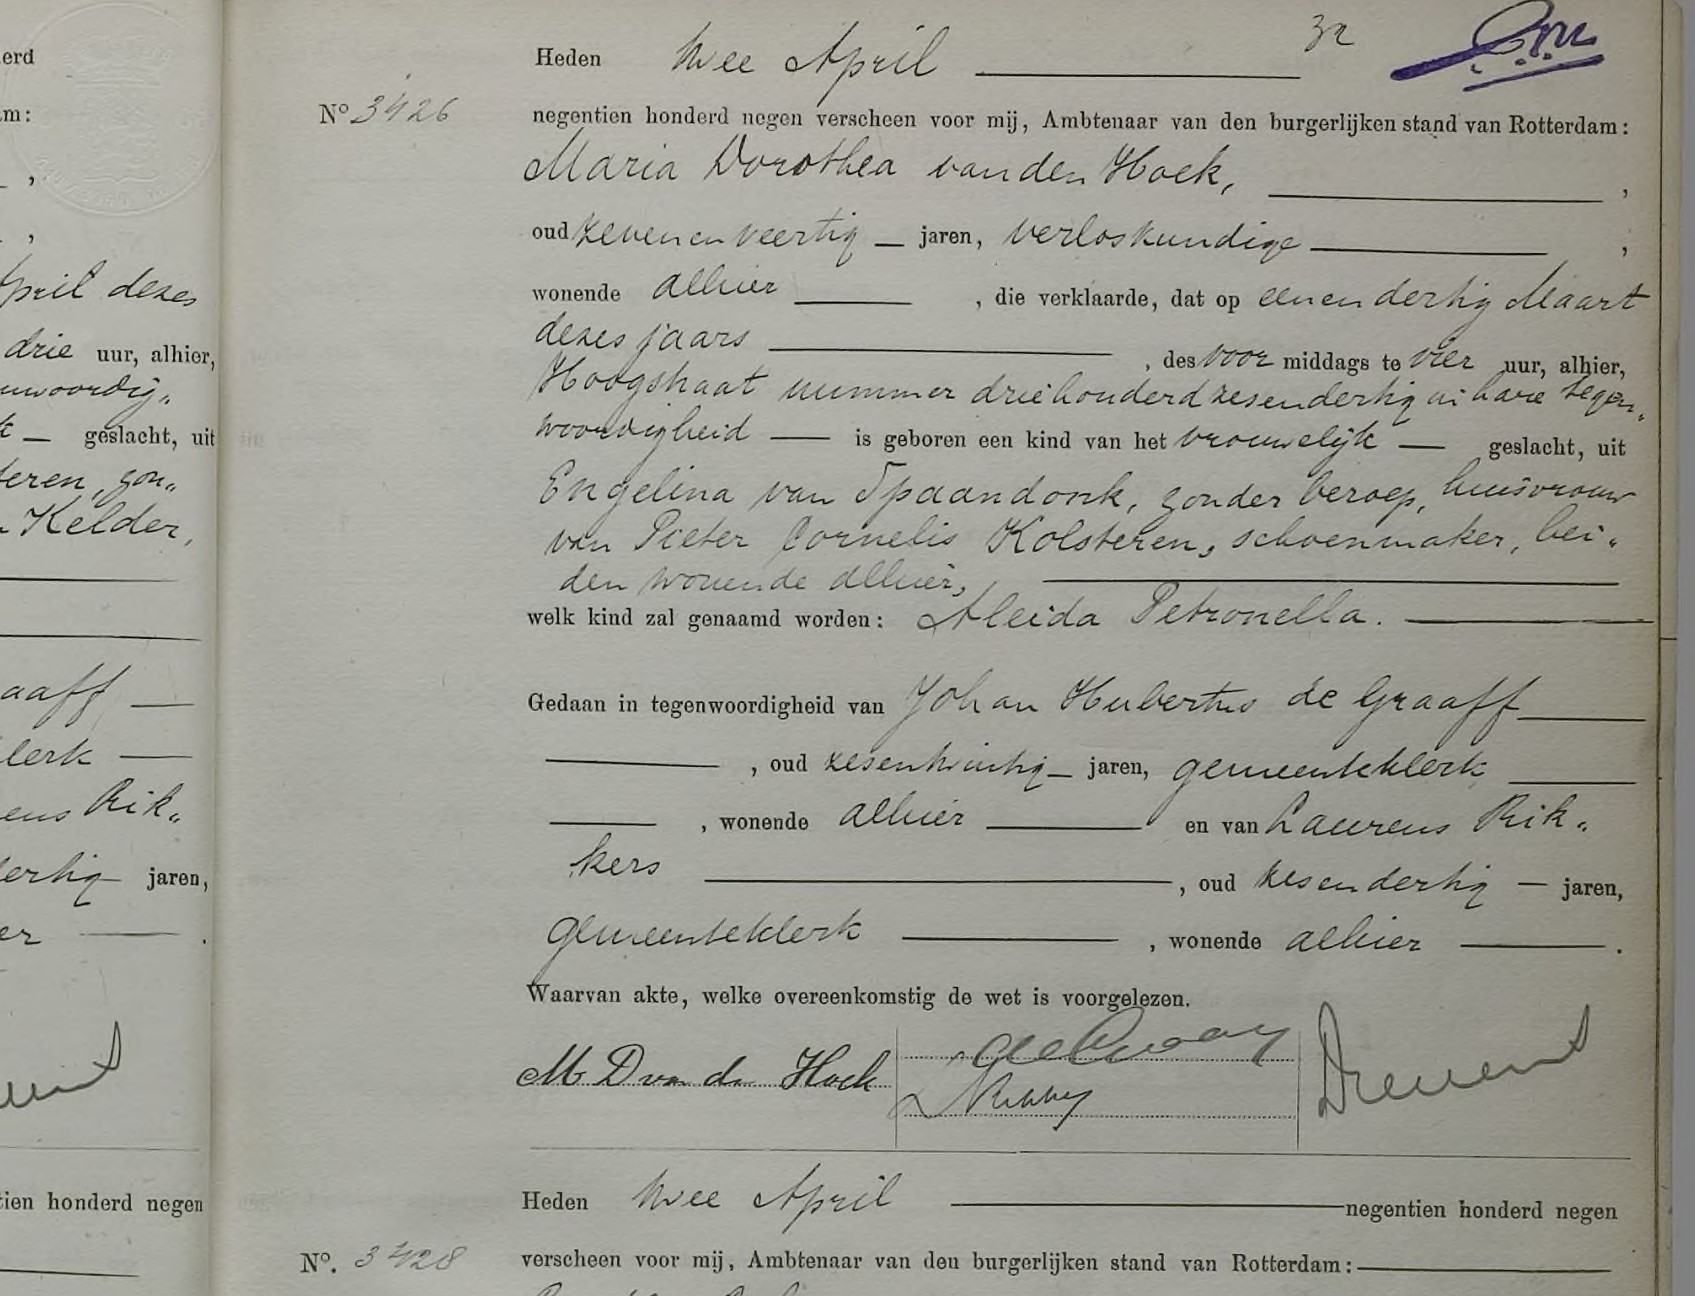 erd
m:
,
,
April dezes
drie uur, alhier,
nwoordig„
k — geslacht, uit
teren, zon„
Kelder,
aaff
lerk
ens Rik„
dertig jaren,
er .
tien honderd negen
32
Heden twee April
No 3426
negentien honderd negen verscheen voor mij, Ambtenaar van den burgerlijken stand van Rotterdam:
Maria Dorothea van den Hoek, ,
oud zeven en veertig — jaren, verloskundige ,
wonende alhier , die verklaarde, dat op een en dertig Maart
dezes jaars , des voor middags te vier uur, alhier,
Hoogstraat nummer driehonderdzesendertig in hare tegen„
woordigheid — is geboren een kind van het vrouwelijk — geslacht, uit
Engelina van Spaandonk, zonder beroep, huisvrouw
van Pieter Cornelis Kolsteren, schoenmaker, bei„
den wonende alhier,
welk kind zal genaamd worden: Aleida Petronella.
Gedaan in tegenwoordigheid van Johan Hubertus de Graaff
, oud zesentwintig — jaren, gemeenteklerk
, wonende alhier en van Laurens Rik„
kers , oud zesendertig — jaren,
gemeenteklerk , wonende alhier .
Waarvan akte, welke overeenkomstig de wet is voorgelezen.
M D van den Hoek
Heden twee April negentien honderd negen
No. 3428
verscheen voor mij, Ambtenaar van den burgerlijken stand van Rotterdam: